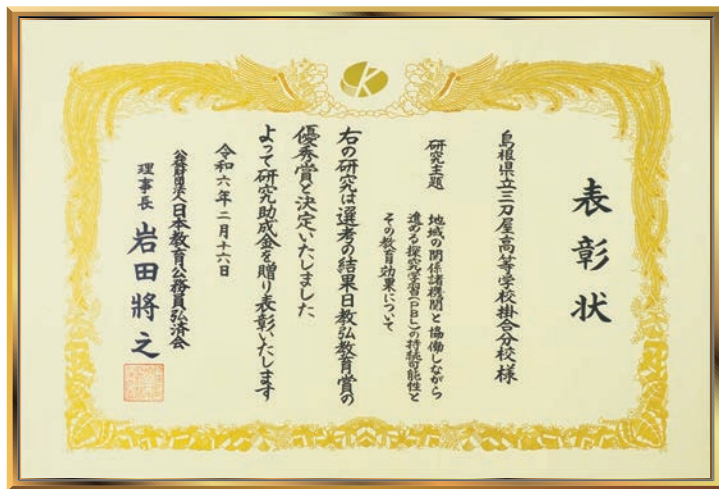 表彰状
島根県立三刀屋高等学校掛合分校様
研究主題
地域の関係諸機関と協働しながら
進める探究学習(PBL)の持続可能性と
その教育効果について
右の研究は選考の結果日教弘教育賞の
優秀賞と決定いたしました
よって研究助成金を贈り表彰いたします
令和六年二月十六日
公益財団法人日本教育公務員弘済会
理事長 岩田將之